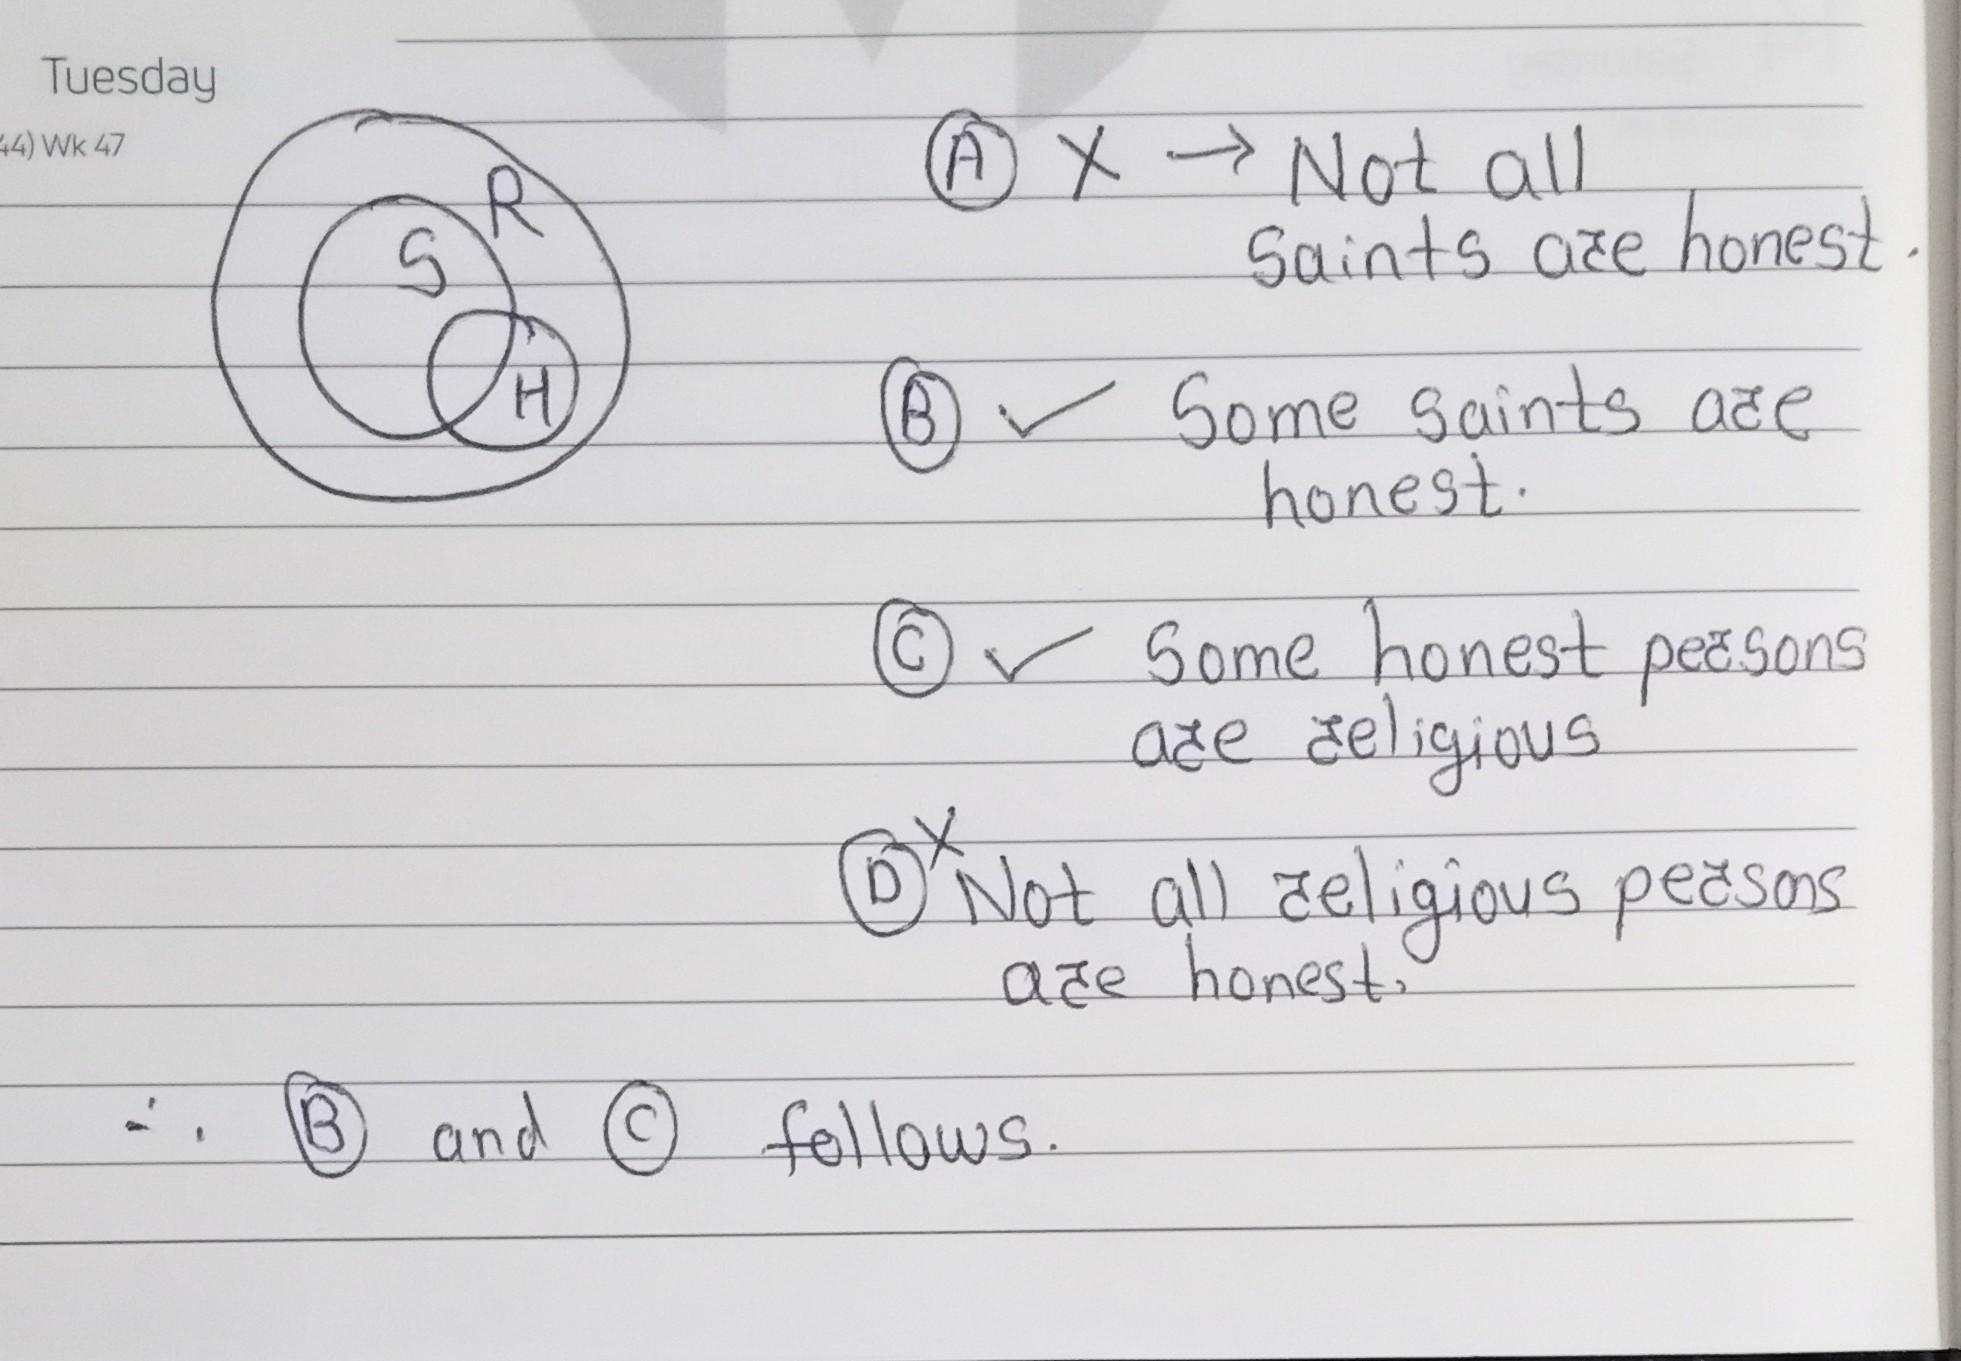 Tuesday
44) Wk 47
R
S
H
A X → Not all
saints are honest.
B ✓ Some saints are
honest.
C ✓ Some honest persons
are religious
D X Not all religious persons
are honest.
∴ B and C follows.